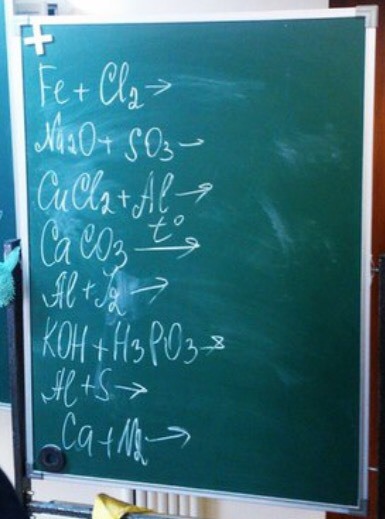 Fe + Cl₂ →
Na₂O + SO₃ →
CuCl₂ + Al →
CaCO₃ t° →
Al + J₂ →
KOH + H₃PO₃ →
Al + S →
Ca + N₂ →